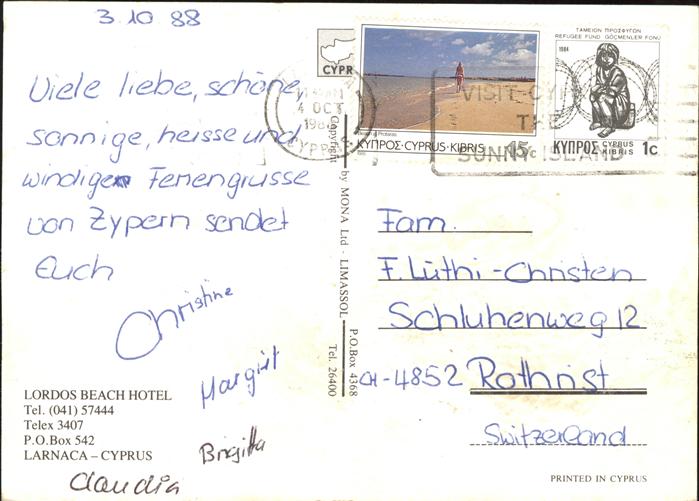 3.10 88
Viele liebe, schöne,
sonnige, heisse und
windige Feriengrüsse
von Zypern sendet
Euch
Christine
Margrit
Brigitta
Claudia
LORDOS BEACH HOTEL
Tel. (041) 57444
Telex 3407
P.O.Box 542
LARNACA – CYPRUS
Copyright by MONA Ltd - LIMASSOL
P.O.Box 4368
Tel. 26400
CYPR
4 OCT
198
VISIT CY
THE
SUNNY ISLAND
ΚΥΠΡΟΣ·CYPRUS·KIBRIS 15c
ΤΑΜΕΙΟΝ ΠΡΟΣΦΥΓΩΝ
REFUGEE FUND GÖÇMENLER FONU
1984
ΚΥΠΡΟΣ CYPRUS KIBRIS 1c
Fam.
F. Lüthi-Christen
Schluhenweg 12
CH-4852 Rothrist
Switzerland
PRINTED IN CYPRUS